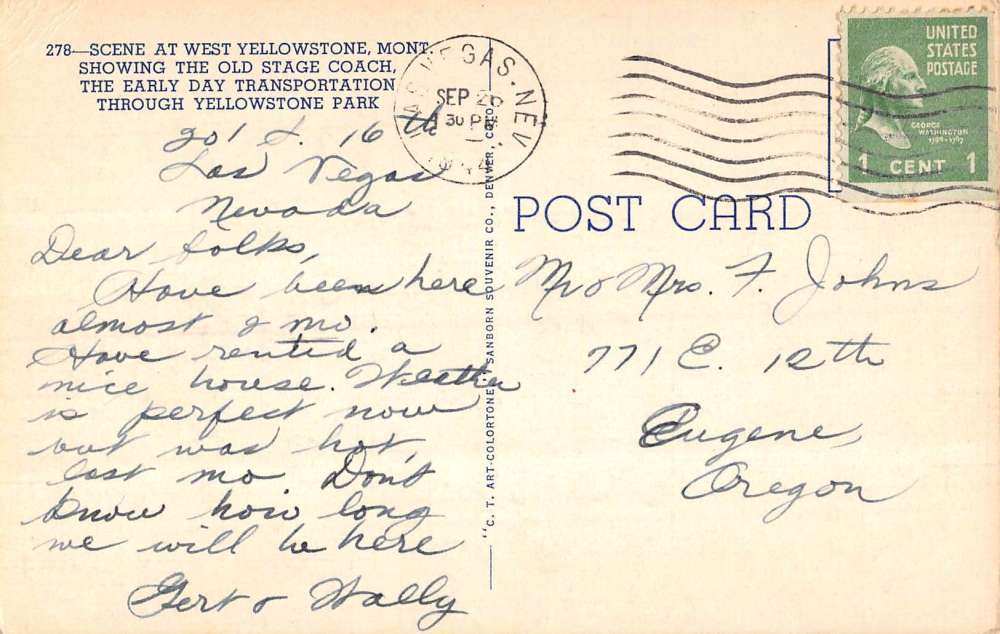 278—SCENE AT WEST YELLOWSTONE, MONT.
SHOWING THE OLD STAGE COACH,
THE EARLY DAY TRANSPORTATION
THROUGH YELLOWSTONE PARK
201 S. 16th
Las Vegas
Nevada
Dear folks,
Have been here
almost 2 mo.
Have rented a
nice house. Weather
is perfect now
but was hot
last mo. Don't
know how long
we will be here
Gert & Wally
"C. T. ART-COLORTONE" SANBORN SOUVENIR CO., DENVER, COLO.
VEGAS. NEV.
SEP
30 PM
UNITED
STATES
POSTAGE
GEORGE
WASHINGTON
1789-1797
1 CENT 1
POST CARD
Mr & Mrs. F. Johns
771 E. 12th
Eugene,
Oregon